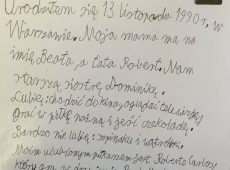 Urodziłem się 13 listopada 1990 r. w
Warszawie. Moja mama ma na
imię Beata, a tata Robert. Mam
starszą siostrę Dominikę.
Lubię: chodzić do kina, oglądać telewizję,
grać w piłkę nożną i jeść czekoladę.
Bardzo nie lubię: szpinaku i wątróbki.
Moim ulubionym piłkarzem jest Roberto Carlos,
który gra w